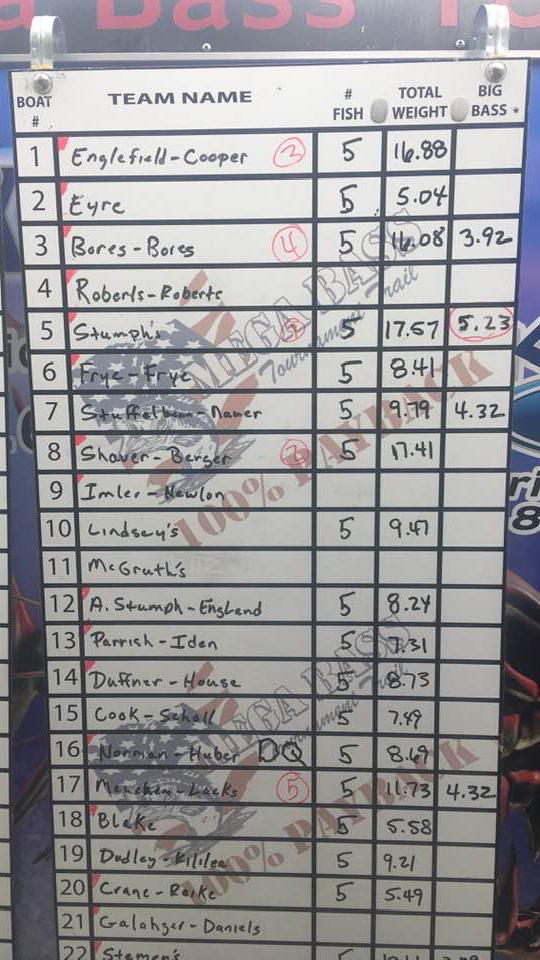 a Bass To
BOAT # TEAM NAME # FISH TOTAL WEIGHT BIG BASS
1 Englefield-Cooper 3 5 16.88
2 Eyre 5 5.04
3 Bores-Bores 4 5 16.08 3.92
4 Roberts-Roberts
5 Stumph's 5 17.57 5.23
6 Frye-Frye 5 8.41
7 Stuffelbean-Nauer 5 9.79 4.32
8 Shaver-Berger 2 5 17.41
9 Imler-Newlon
10 Lindsey's 5 9.47
11 McGrath's
12 A. Stumph-England 5 8.24
13 Parrish-Iden 5 7.31
14 Duffner-House 5 8.73
15 Cook-Scholl 5 7.49
16 Norman-Huber DQ 5 8.69
17 5 5 11.73 4.32
18 Blake 5 5.58
19 Dudley-Kililea 5 9.21
20 Crane-Reike 5 5.49
21 Galahger-Daniels
22 Stemen's
MEGA BASS
Tournament Trail
100% PAYBACK
MEGA BASS
Tournament Trail
100% PAYBACK